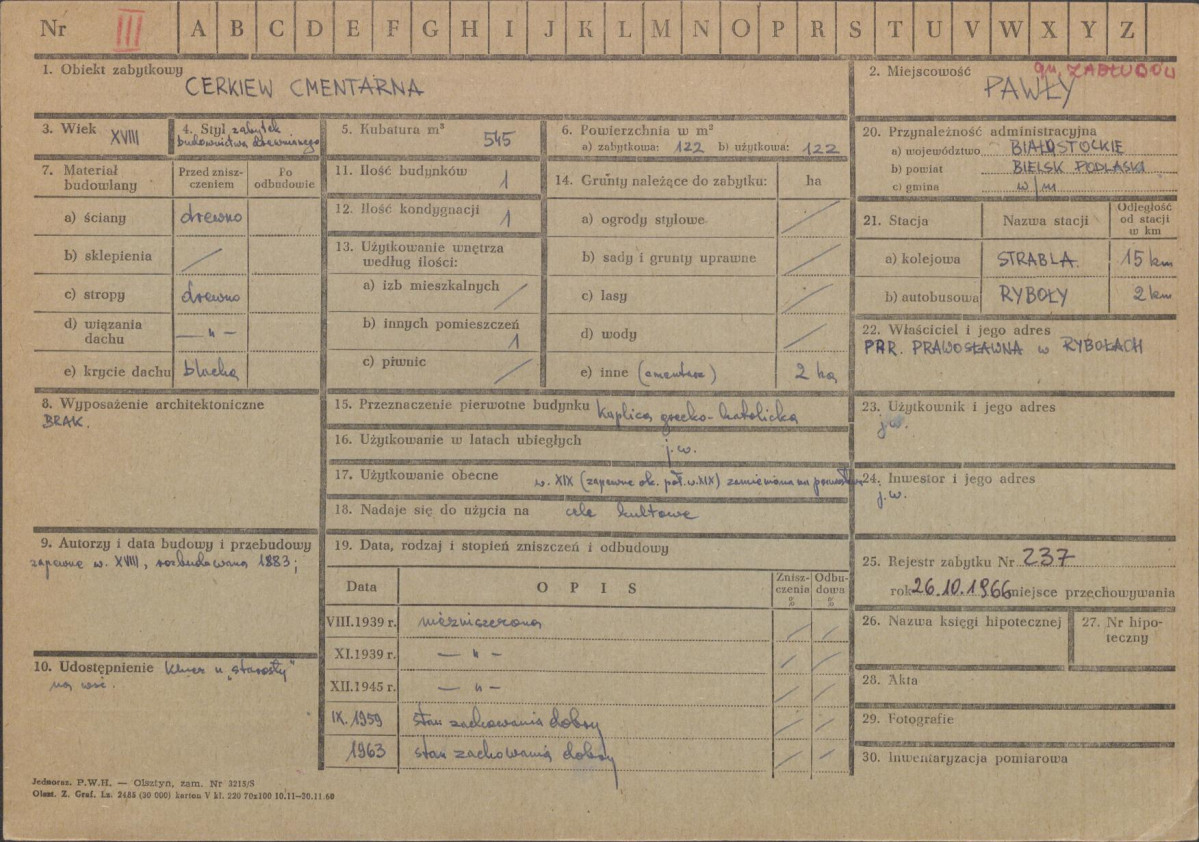 Nr III A B C D E F G H I J K L M N O P R S T U V W X Y Z
1. Obiekt zabytkowy
CERKIEW CMENTARNA
2. Miejscowość
gm. ZABŁUDÓW
PAWŁY
3. Wiek XVIII
4. Styl zabytek
budownictwa drewnianego
5. Kubatura m³ 545
6. Powierzchnia w m²
a) zabytkowa: 122 b) użytkowa: 122
7. Materiał
budowlany
Przed znisz-
czeniem
Po
odbudowie
a) ściany drewno
b) sklepienia
c) stropy drewno
d) wiązania
dachu — " —
e) krycie dachu blacha
8. Wyposażenie architektoniczne
BRAK.
9. Autorzy i data budowy i przebudowy
zapewne w. XVIII, rozbudowana 1883;
10. Udostępnienie klucz u „starosty"
na wsi.
11. Ilość budynków 1
12. Ilość kondygnacji 1
13. Użytkowanie wnętrza
według ilości:
a) izb mieszkalnych
b) innych pomieszczeń
1
c) piwnic
14. Grunty należące do zabytku: ha
a) ogrody stylowe
b) sady i grunty uprawne
c) lasy
d) wody
e) inne (cmentarz) 2 ha
15. Przeznaczenie pierwotne budynku kaplica grecko-katolicka
16. Użytkowanie w latach ubiegłych j.w.
17. Użytkowanie obecne w. XIX (zapewne ok. poł. w. XIX) zamieniona na
18. Nadaje się do użycia na cele kultowe
19. Data, rodzaj i stopień zniszczeń i odbudowy
Data O P I S Znisz-
czenia
% Odbu-
dowa
%
VIII.1939 r. niezniszczona
XI.1939 r. — " —
XII.1945 r. — " —
IX. 1959 stan zachowania dobry
1963 stan zachowania dobry
20. Przynależność administracyjna
a) województwo BIAŁOSTOCKIE
b) powiat BIELSK PODLASKI
c) gmina w/m
21. Stacja Nazwa stacji Odległość
od stacji
w km
a) kolejowa STRABLA. 15 km
b) autobusowa RYBOŁY 2 km
22. Właściciel i jego adres
PAR. PRAWOSŁAWNA w RYBOŁACH
23. Użytkownik i jego adres
j.w.
24. Inwestor i jego adres
j.w.
25. Rejestr zabytku Nr 237
rok 26.10.1966 miejsce przechowywania
26. Nazwa księgi hipotecznej
27. Nr hipo-
teczny
28. Akta
29. Fotografie
30. Inwentaryzacja pomiarowa
Jednoraz. P.W.H. — Olsztyn, zam. Nr 3215/S
Olszt. Z. Graf. Lz. 2485 (20 000) karton V kl. 220 70x100 10.11-30.11.60